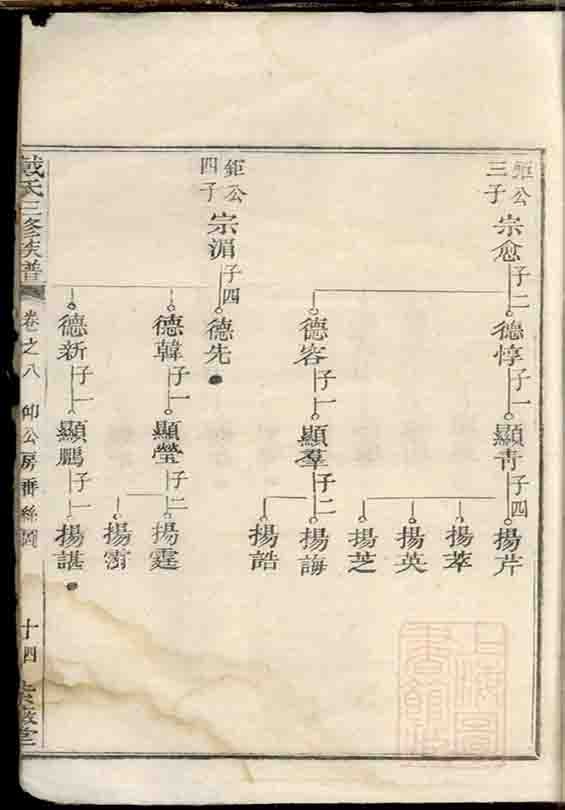 鉅公
三子
宗愈
子二
德惇
子一
顯青
子四
揚芹
揚萃
揚英
揚芝
德容
子一
顯羣
子二
揚誨
揚誥
鉅公
四子
宗湄
子四
德先
德韓
子一
顯瑩
子二
揚霆
揚霄
德新
子一
顯鵬
子一
揚諶
戴氏三修族譜
卷之八
公房
十四
上海圖
書館